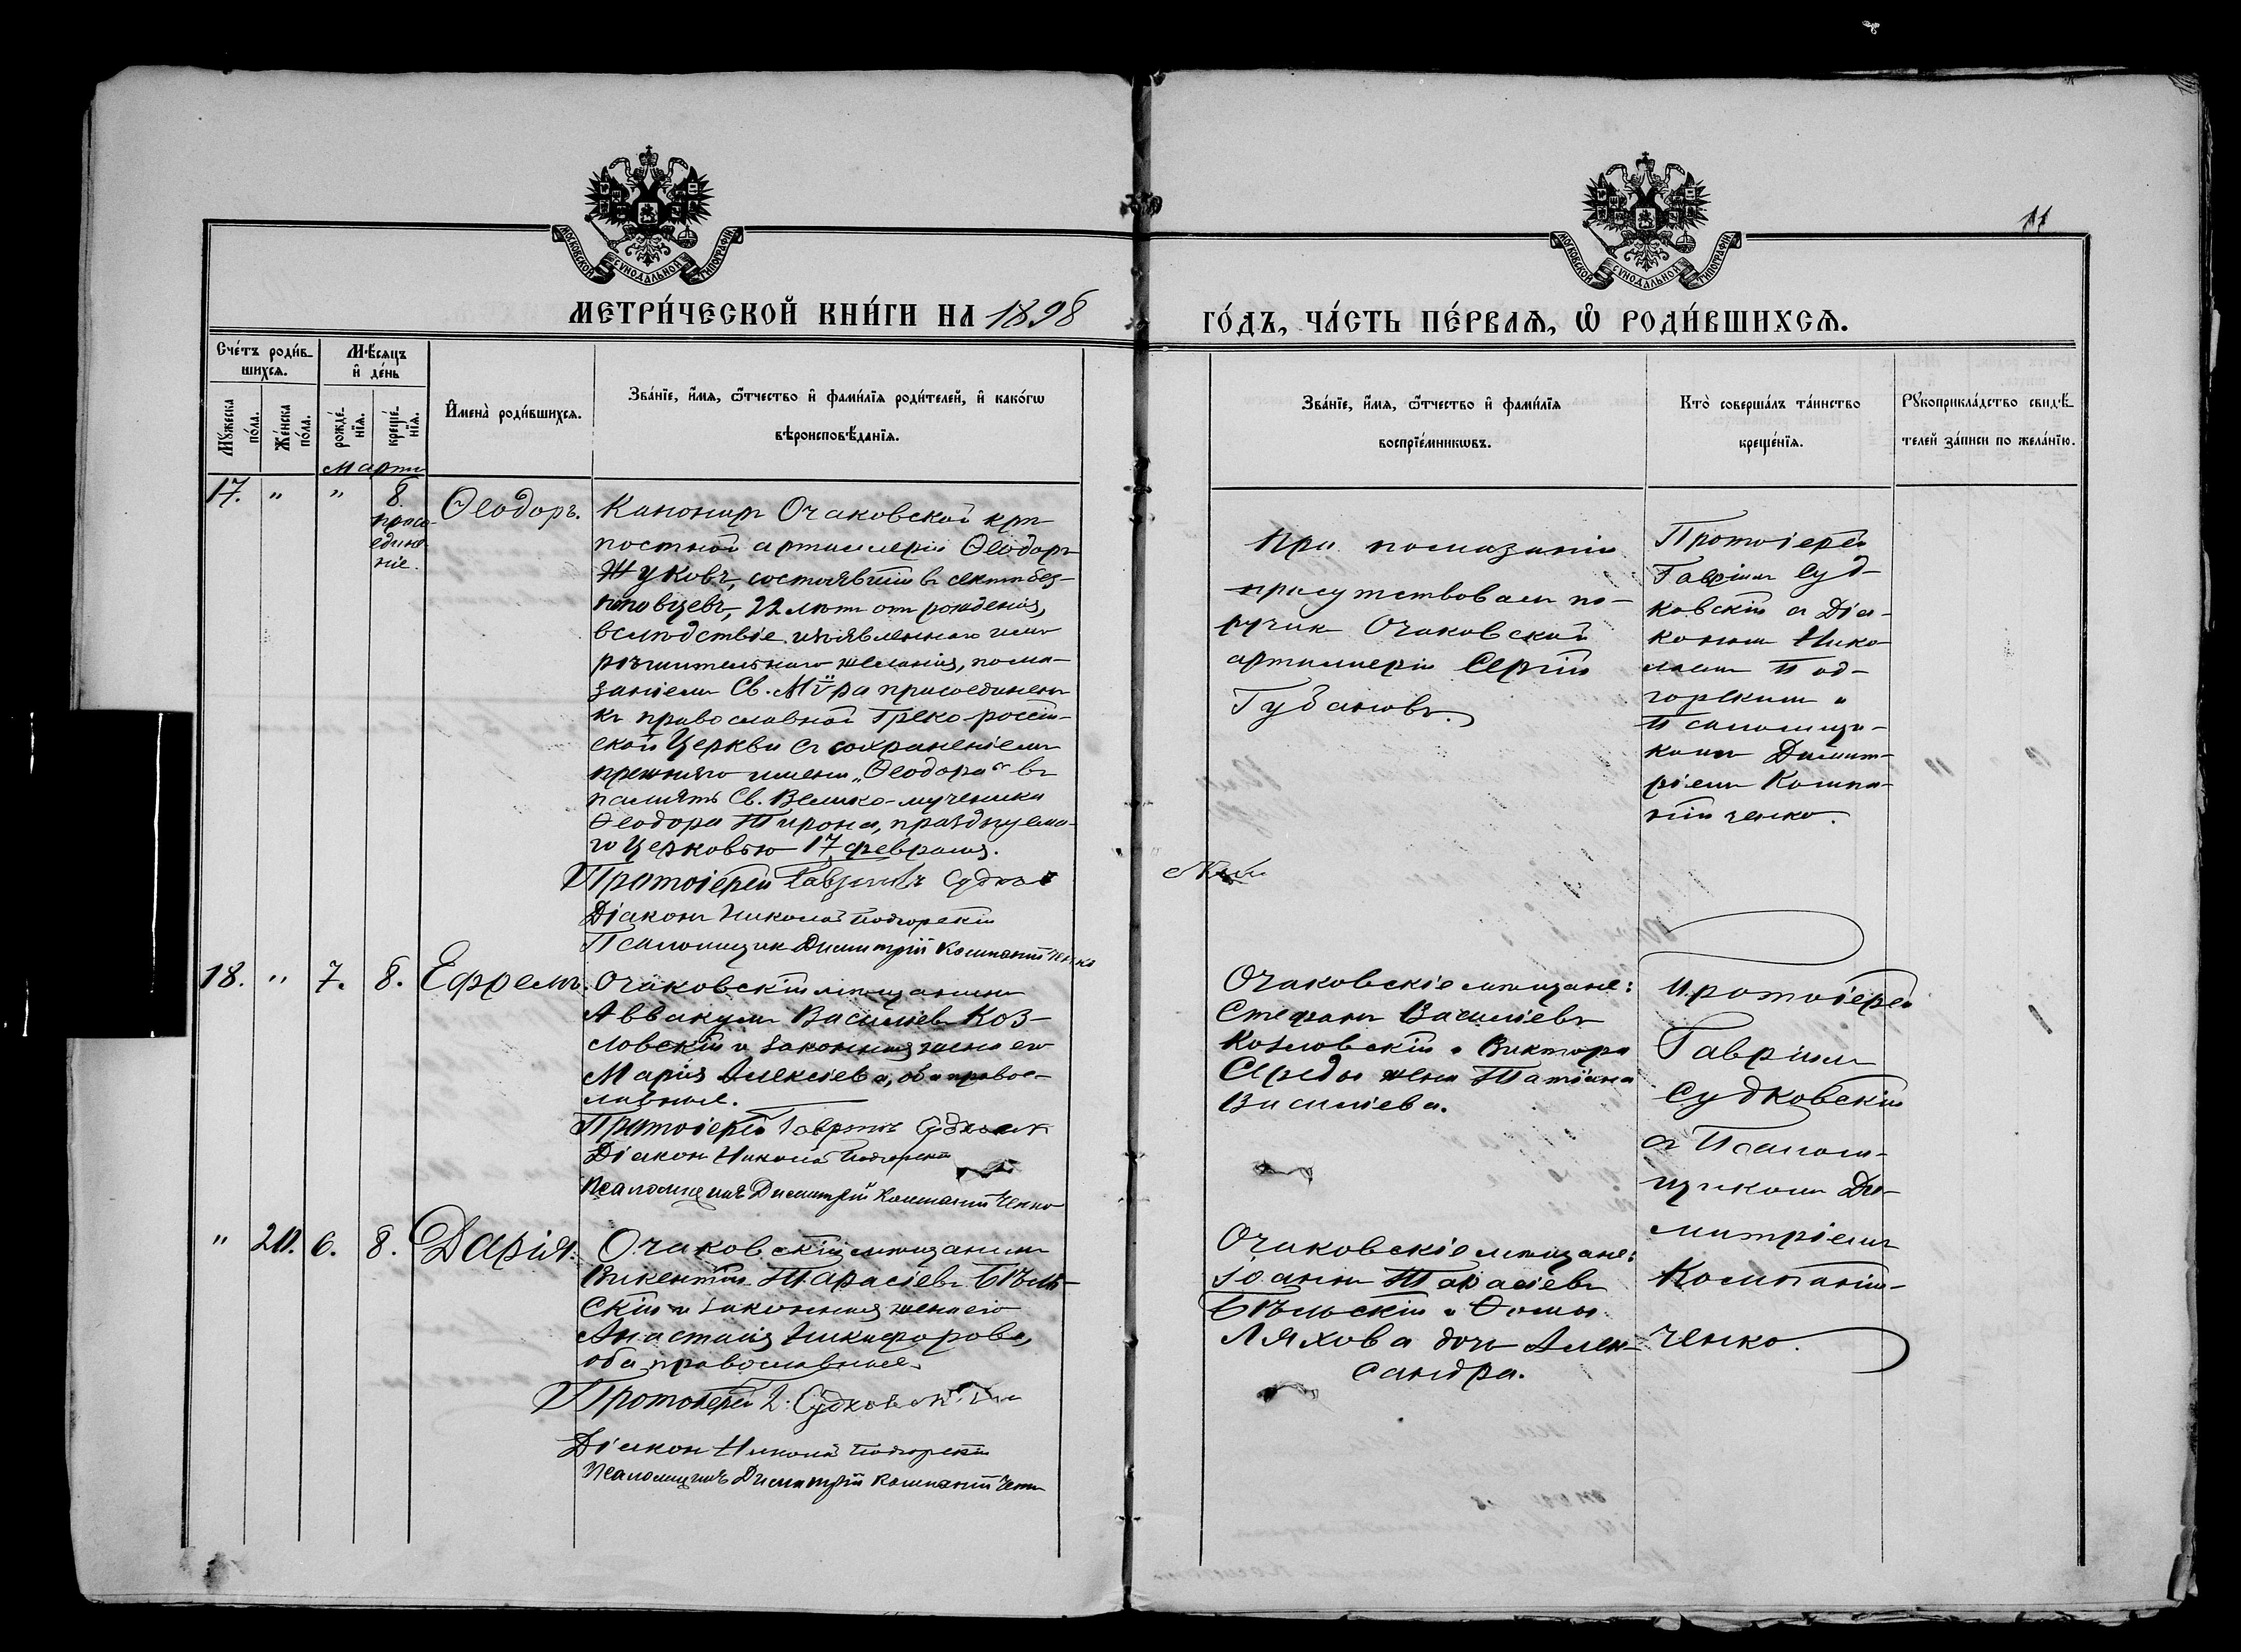 11
МОСКОВСКОЙ СѴНОДАЛЬНОЙ ТИПОГРАФІИ
МОСКОВСКОЙ СѴНОДАЛЬНОЙ ТИПОГРАФІИ
МЕТРИ́ЧЕСКОЙ КНИ́ГИ НА 1898
ГО́ДЪ, ЧА́СТЬ ПЕ́РВАѦ, Ѽ РОДИ́ВШИХСѦ.
Сче́тъ роди́в-
шихсѧ.
Мꙋ́жеска
по́ла.
Же́нска
по́ла.
Мѣ́сѧцъ
и҆ де́нь
рожде́-
нїѧ.
креще́-
нїѧ.
И҆мена̀ роди́вшихсѧ.
Зва́нїе, и҆́мѧ, ѻ҆́тчество и҆ фамѝлїѧ роди́телей, и҆ како́гѡ
вѣроисповѣ́данїѧ.
Зва́нїе, и҆́мѧ, ѻ҆́тчество и҆ фамѝлїѧ
воспрїе́мникѡвъ.
Кто̀ соверша́лъ та́инство
креще́нїѧ.
Рꙋкоприкла́дство свидѣ́-
телей за́писи по жела́нїю.
Мартъ
17. " " 8.
присо-
едине-
ніе.
Ѳеодоръ.
Канониръ Очаковской крѣ-
постной артиллеріи Ѳеодоръ
Жуковъ, состоявшій въ сектѣ без-
поповцевъ, 22 лѣтъ отъ рожденія,
вслѣдствіе изъявленнаго имъ
рѣшительнаго желанія, пома-
заніемъ Св. Мѵра присоединенъ
къ православной Греко-россій-
ской Церкви съ сохраненіемъ
прежняго имени „Ѳеодора“ въ
память Св. Велико-мученика
Ѳеодора Тирона, празднуема-
го Церковью 17 февраля.
Протоіерей Гавріилъ
Діаконъ Николай Подгорскій
Псаломщикъ Димитрій Компанійченко
При помазаніи
присутствовалъ по-
ручикъ Очаковской
артиллеріи Сергій
Губановъ.
Протоіерей
Гавріилъ Суд-
ковскій съ Діа-
кономъ Нико-
лаемъ Под-
горскимъ и
Псаломщи-
комъ Димит-
ріемъ Компа-
нійченко.
18. " 7. 8. Ефремъ.
Очаковскій мѣщанинъ
Аввакумъ Васильевъ Коз-
ловскій и законная жена его
Марія Алексіева, оба право-
славные.
Протоіерей Гавріилъ
Діаконъ Николай Подгорскій
Псаломщикъ Димитрій Компанійченко
Очаковскіе мѣщане:
Стефанъ Васильевъ
Козловскій и Виктора
Середы жена Татіана
Васильева.
Протоіерей
Гавріилъ
Судковскій
съ Псалом-
щикомъ Ди-
митріемъ
Компаній-
ченко.
" 20. 6. 8. Дарія.
Очаковскій мѣщанинъ
Викентій Тарасіевъ Бѣль-
скій и законная жена его
Анастасія Никифорова,
оба православные.
Протоіерей Г. Судковскій
Діаконъ Николай Подгорскій
Псаломщикъ Димитрій Компанійченко
Очаковскіе мѣщане:
Іоаннъ Тарасіевъ
Бѣльскій и Ѳомы
Ляхова дочь Алек-
сандра.